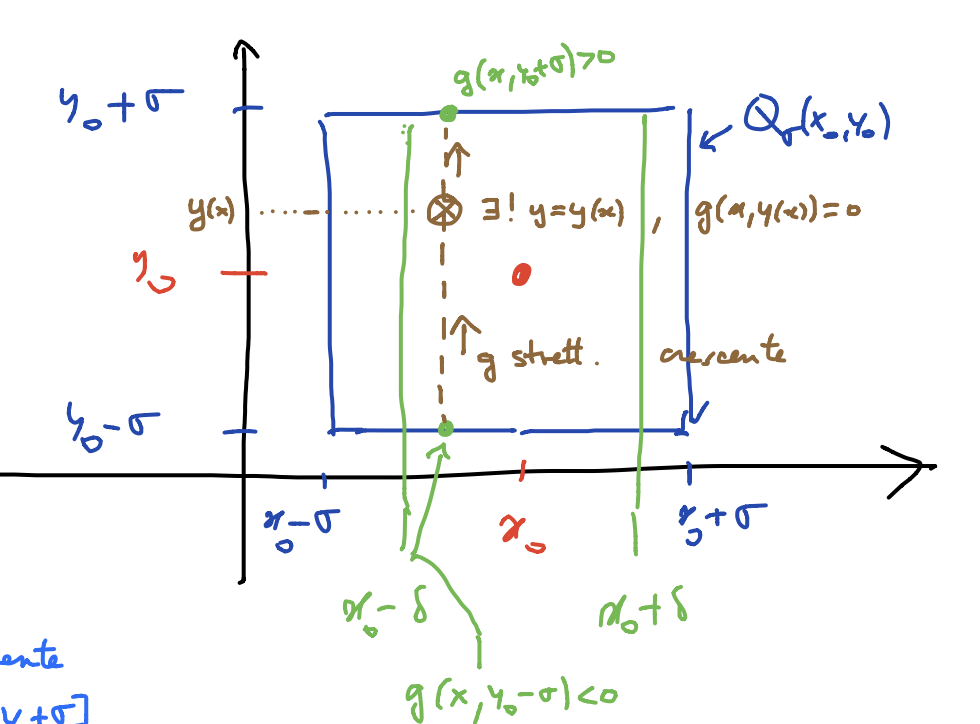 g(x, y₀+σ)>0
y₀+σ
Q_σ(x₀,y₀)
y(x)
∃! y=y(x), g(x,y(x))=0
y₀
g strett. crescente
y₀-σ
x₀-σ
x₀
x₀+σ
x₀-δ
x₀+δ
ente
g(x, y₀-σ)<0
y+σ]